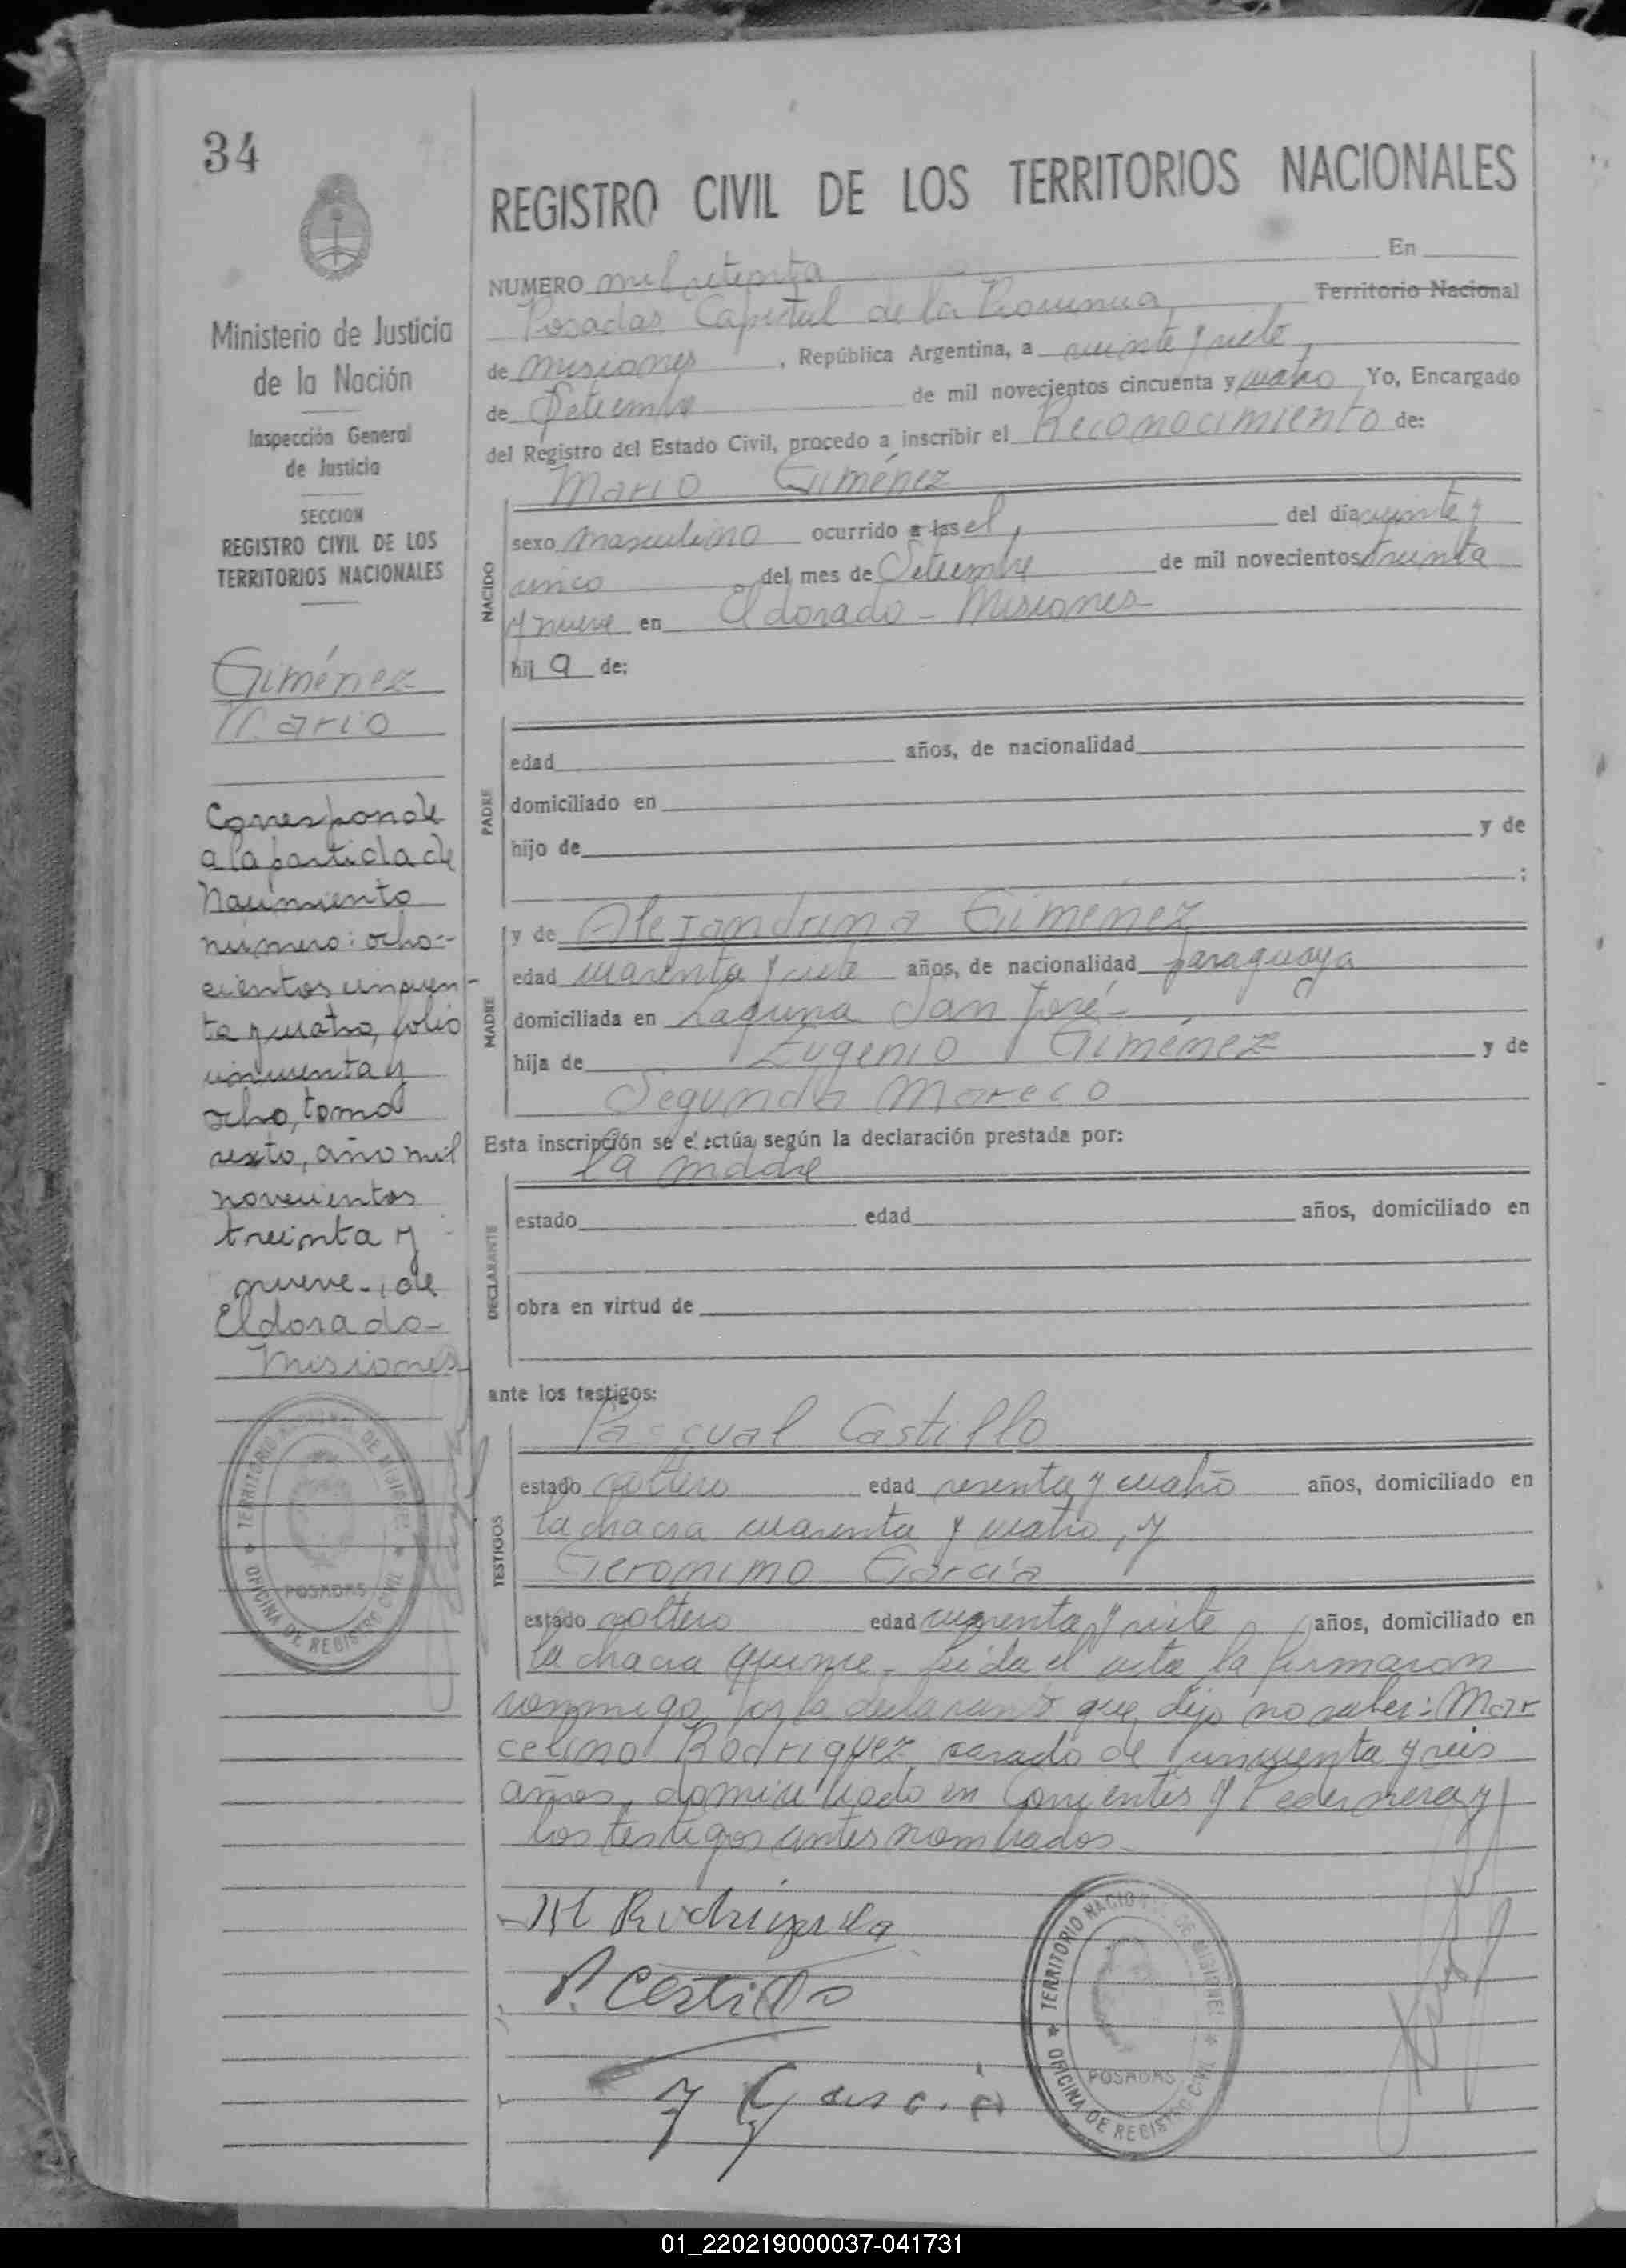 34
REGISTRO CIVIL DE LOS TERRITORIOS NACIONALES
NUMERO mil setenta En
Posadas Capital de la Provincia, Territorio Nacional
de misiones, República Argentina, a veinte y siete,
de Setiembre de mil novecientos cincuenta y cuatro Yo, Encargado
del Registro del Estado Civil, procedo a inscribir el Reconocimiento de:
Ministerio de Justicia
de la Nación
Inspección General
de Justicia
SECCION
REGISTRO CIVIL DE LOS
TERRITORIOS NACIONALES
Giménez
Mario
Corresponde
a la partida de
Nacimiento
número: ocho-
cientos cincuen-
ta y cuatro, folio
cincuenta y
ocho, tomo
sexto, año mil
novecientos
treinta y
nueve-, de
Eldorado-
Misiones
TERRITORIO NACIONAL DE MISIONES
POSADAS
OFICINA DE REGISTRO CIVIL
NACIDO
Mario Giménez
sexo masculino ocurrido a las el, del día veinte y
cinco del mes de Setiembre de mil novecientos treinta
y nueve en Eldorado - Misiones
hij a de:
PADRE
edad años, de nacionalidad
domiciliado en
hijo de y de
;
MADRE
y de Alejandrina Giménez
edad cuarenta y siete años, de nacionalidad paraguaya
domiciliada en Laguna San José-
hija de Eugenio Giménez y de
Segunda Mareco
Esta inscripción se efectúa según la declaración prestada por:
la madre
DECLARANTE
estado edad años, domiciliado en
obra en virtud de
ante los testigos:
TESTIGOS
Pascual Castillo
estado soltero edad sesenta y cuatro años, domiciliado en
la chacra cuarenta y cuatro, y
Geronimo García
estado soltero edad cuarenta y siete años, domiciliado en
la chacra quince - Leída el acta la firmaron
conmigo, por la declarante que dijo no saber: Mar
celino Rodriguez, casado de cincuenta y seis
años, domiciliado en Corrientes y Pedernera y
los testigos antes nombrados-
M Rodriguez
P. Castillo
J Garcia
TERRITORIO NACIONAL DE MISIONES
POSADAS
OFICINA DE REGISTRO CIVIL
01_220219000037-041731